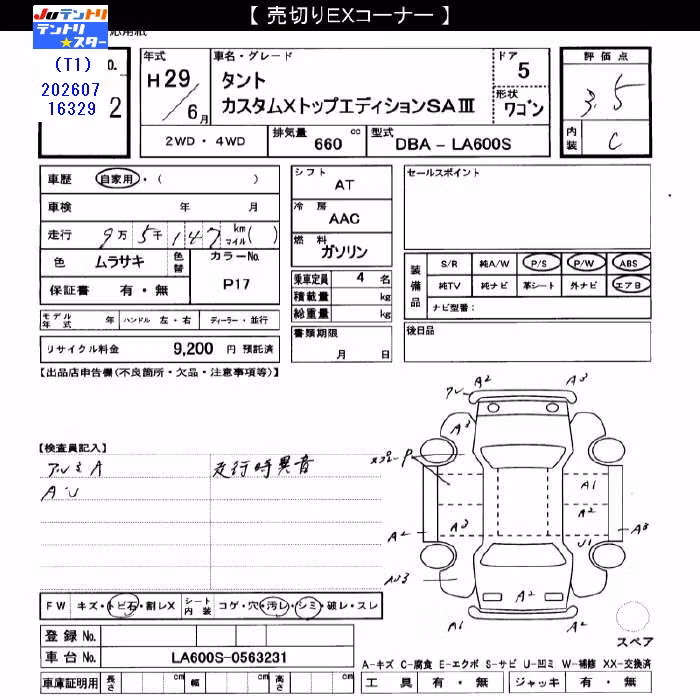 【 売切りEXコーナー 】
JUテントリ
テントリ
★スター
(T1)
202607
16329
2
年式
H29
6月
車名・グレード
タント
カスタムXトップエディションSAⅢ
ドア
5
形状
ワゴン
評価点
3.5
内装
C
2WD・4WD
排気量 660 cc
型式 DBA - LA600S
車歴 自家用・( )
車検 年 月
走行 9万5千147 km マイル( )
色 ムラサキ 色替
カラーNo. P17
保証書 有・無
シフト AT
冷房 AAC
燃料 ガソリン
乗車定員 4 名
積載量 kg
総重量 kg
書類期限
月 日
セールスポイント
装備品
S/R 純A/W P/S P/W ABS
純TV 純ナビ 革シート 外ナビ エアB
ナビ型番:
後日品
モデル年式 年 ハンドル 左・右 ディーラー・並行
リサイクル料金 9,200 円 預託済
【出品店申告欄(不良箇所・欠品・注意事項等)】
【検査員記入】
アルミA
AU
走行時異音
アレ A2 A3
A3
スプレーP
A1
A2
A2 A3 A3
U1
AU3
A2
A1 A2
スペア
FW キズ・トビ石・割レX シート内装 コゲ・穴・汚レ・シミ・破レ・スレ
登録No.
車台No. LA600S-0563231
車庫証明用 長さ cm 幅 cm 高さ cm
A-キズ C-腐食 E-エクボ S-サビ U-凹ミ W-補修 XX-交換済
工具 有・無 ジャッキ 有・無